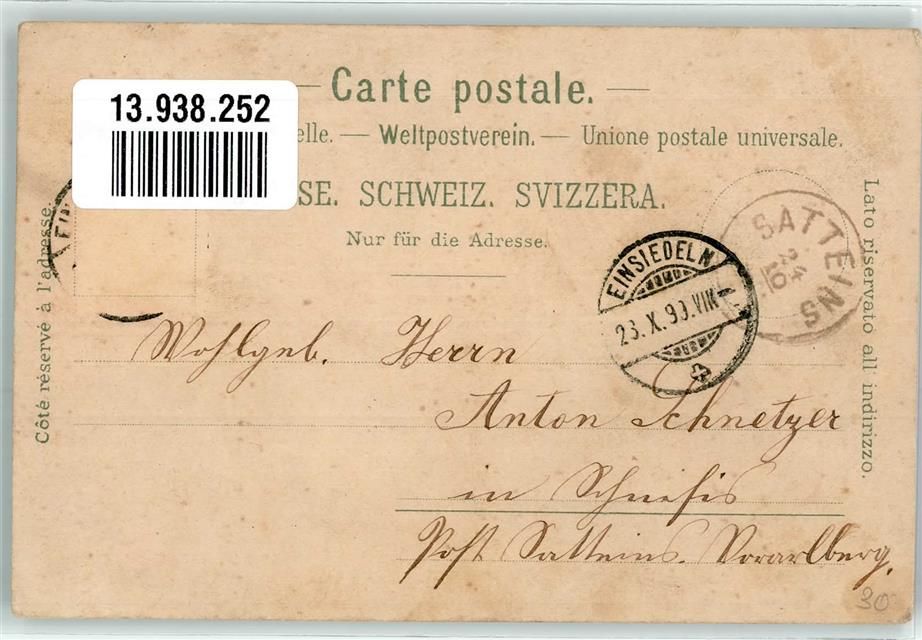 13.938.252
Carte postale.
elle. — Weltpostverein. — Unione postale universale.
SE. SCHWEIZ. SVIZZERA.
Nur für die Adresse.
Côté réservé à l'adresse.
Lato riservato all' indirizzo.
SATTEINS
EINSIEDELN
23.X.99.VIII
Wohlgeb. Herrn
Anton Schnetzer
in Schnifis
Post Satteins. Vorarlberg.
30